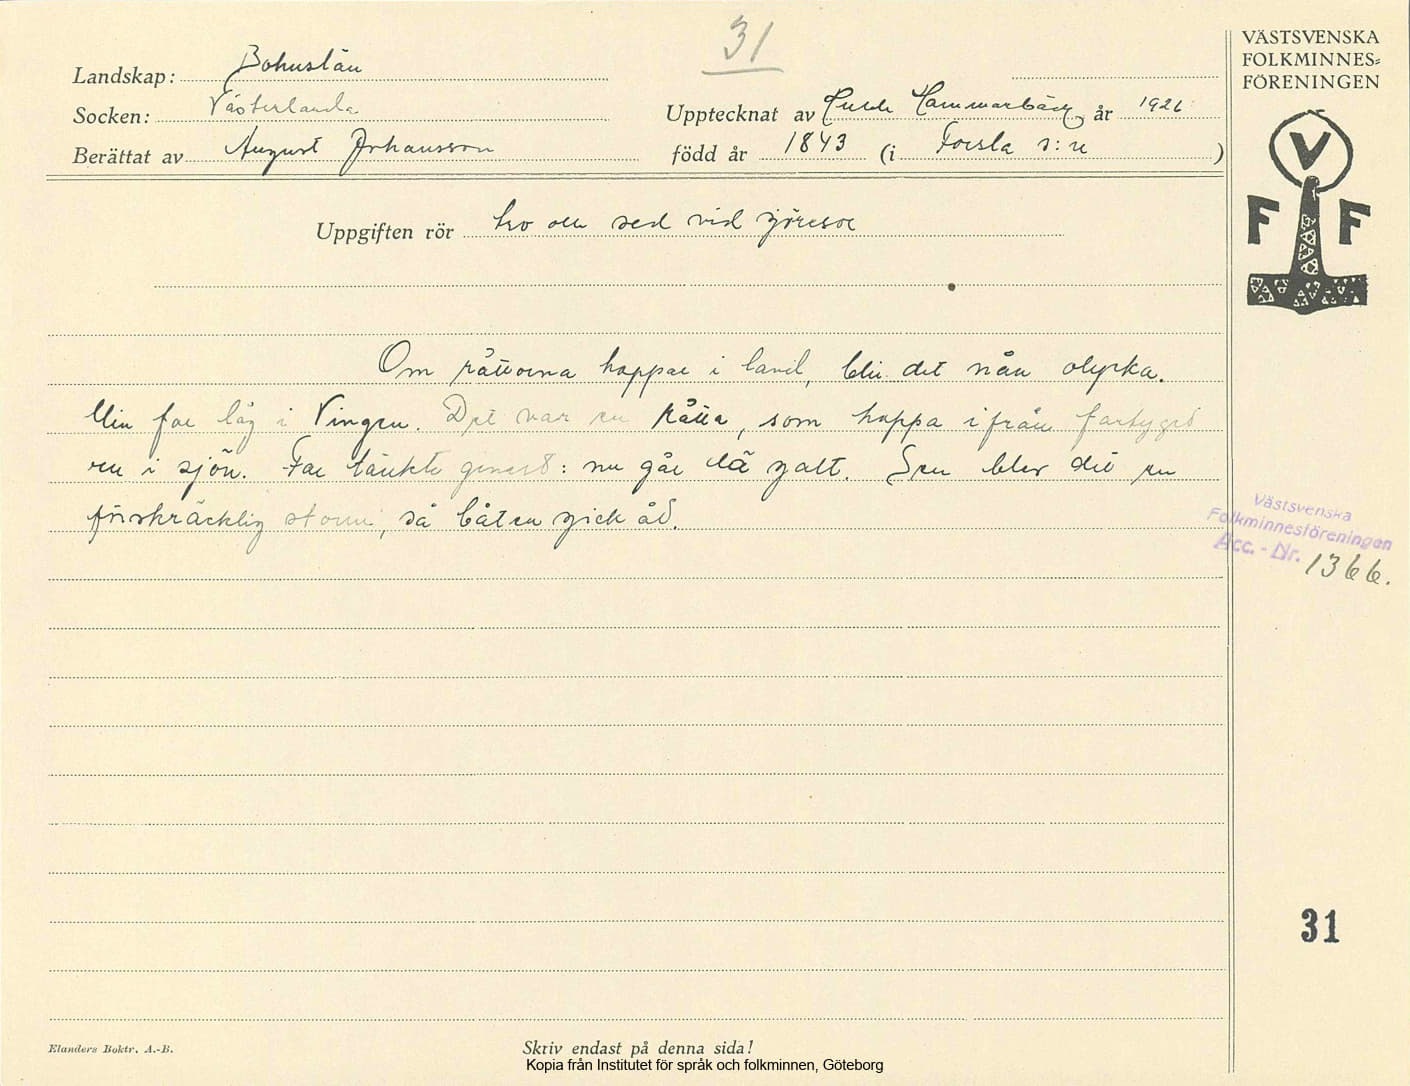 31
VÄSTSVENSKA
FOLKMINNES=
FÖRENINGEN
Landskap: Bohuslän
Socken: Västerlanda
Upptecknat av Hulda Hammarbäck år 1926
Berättat av August Johansson
född år 1843 (i Forsla s:n )
Uppgiften rör tro och sed vid sjöresor
V
F F
Om råttorna hoppar i land, blir det nån olycka.
Min far låg i Vingen. Det var en råtta, som hoppa ifrån fartyget
en i sjön. Far tänkte genast: nu går dä galt. Sen blev det en
förskräcklig storm, så båten gick åd.
Västsvenska
Folkminnesföreningen
Acc. - Nr. 1366.
31
Elanders Boktr. A.-B.
Skriv endast på denna sida!
Kopia från Institutet för språk och folkminnen, Göteborg